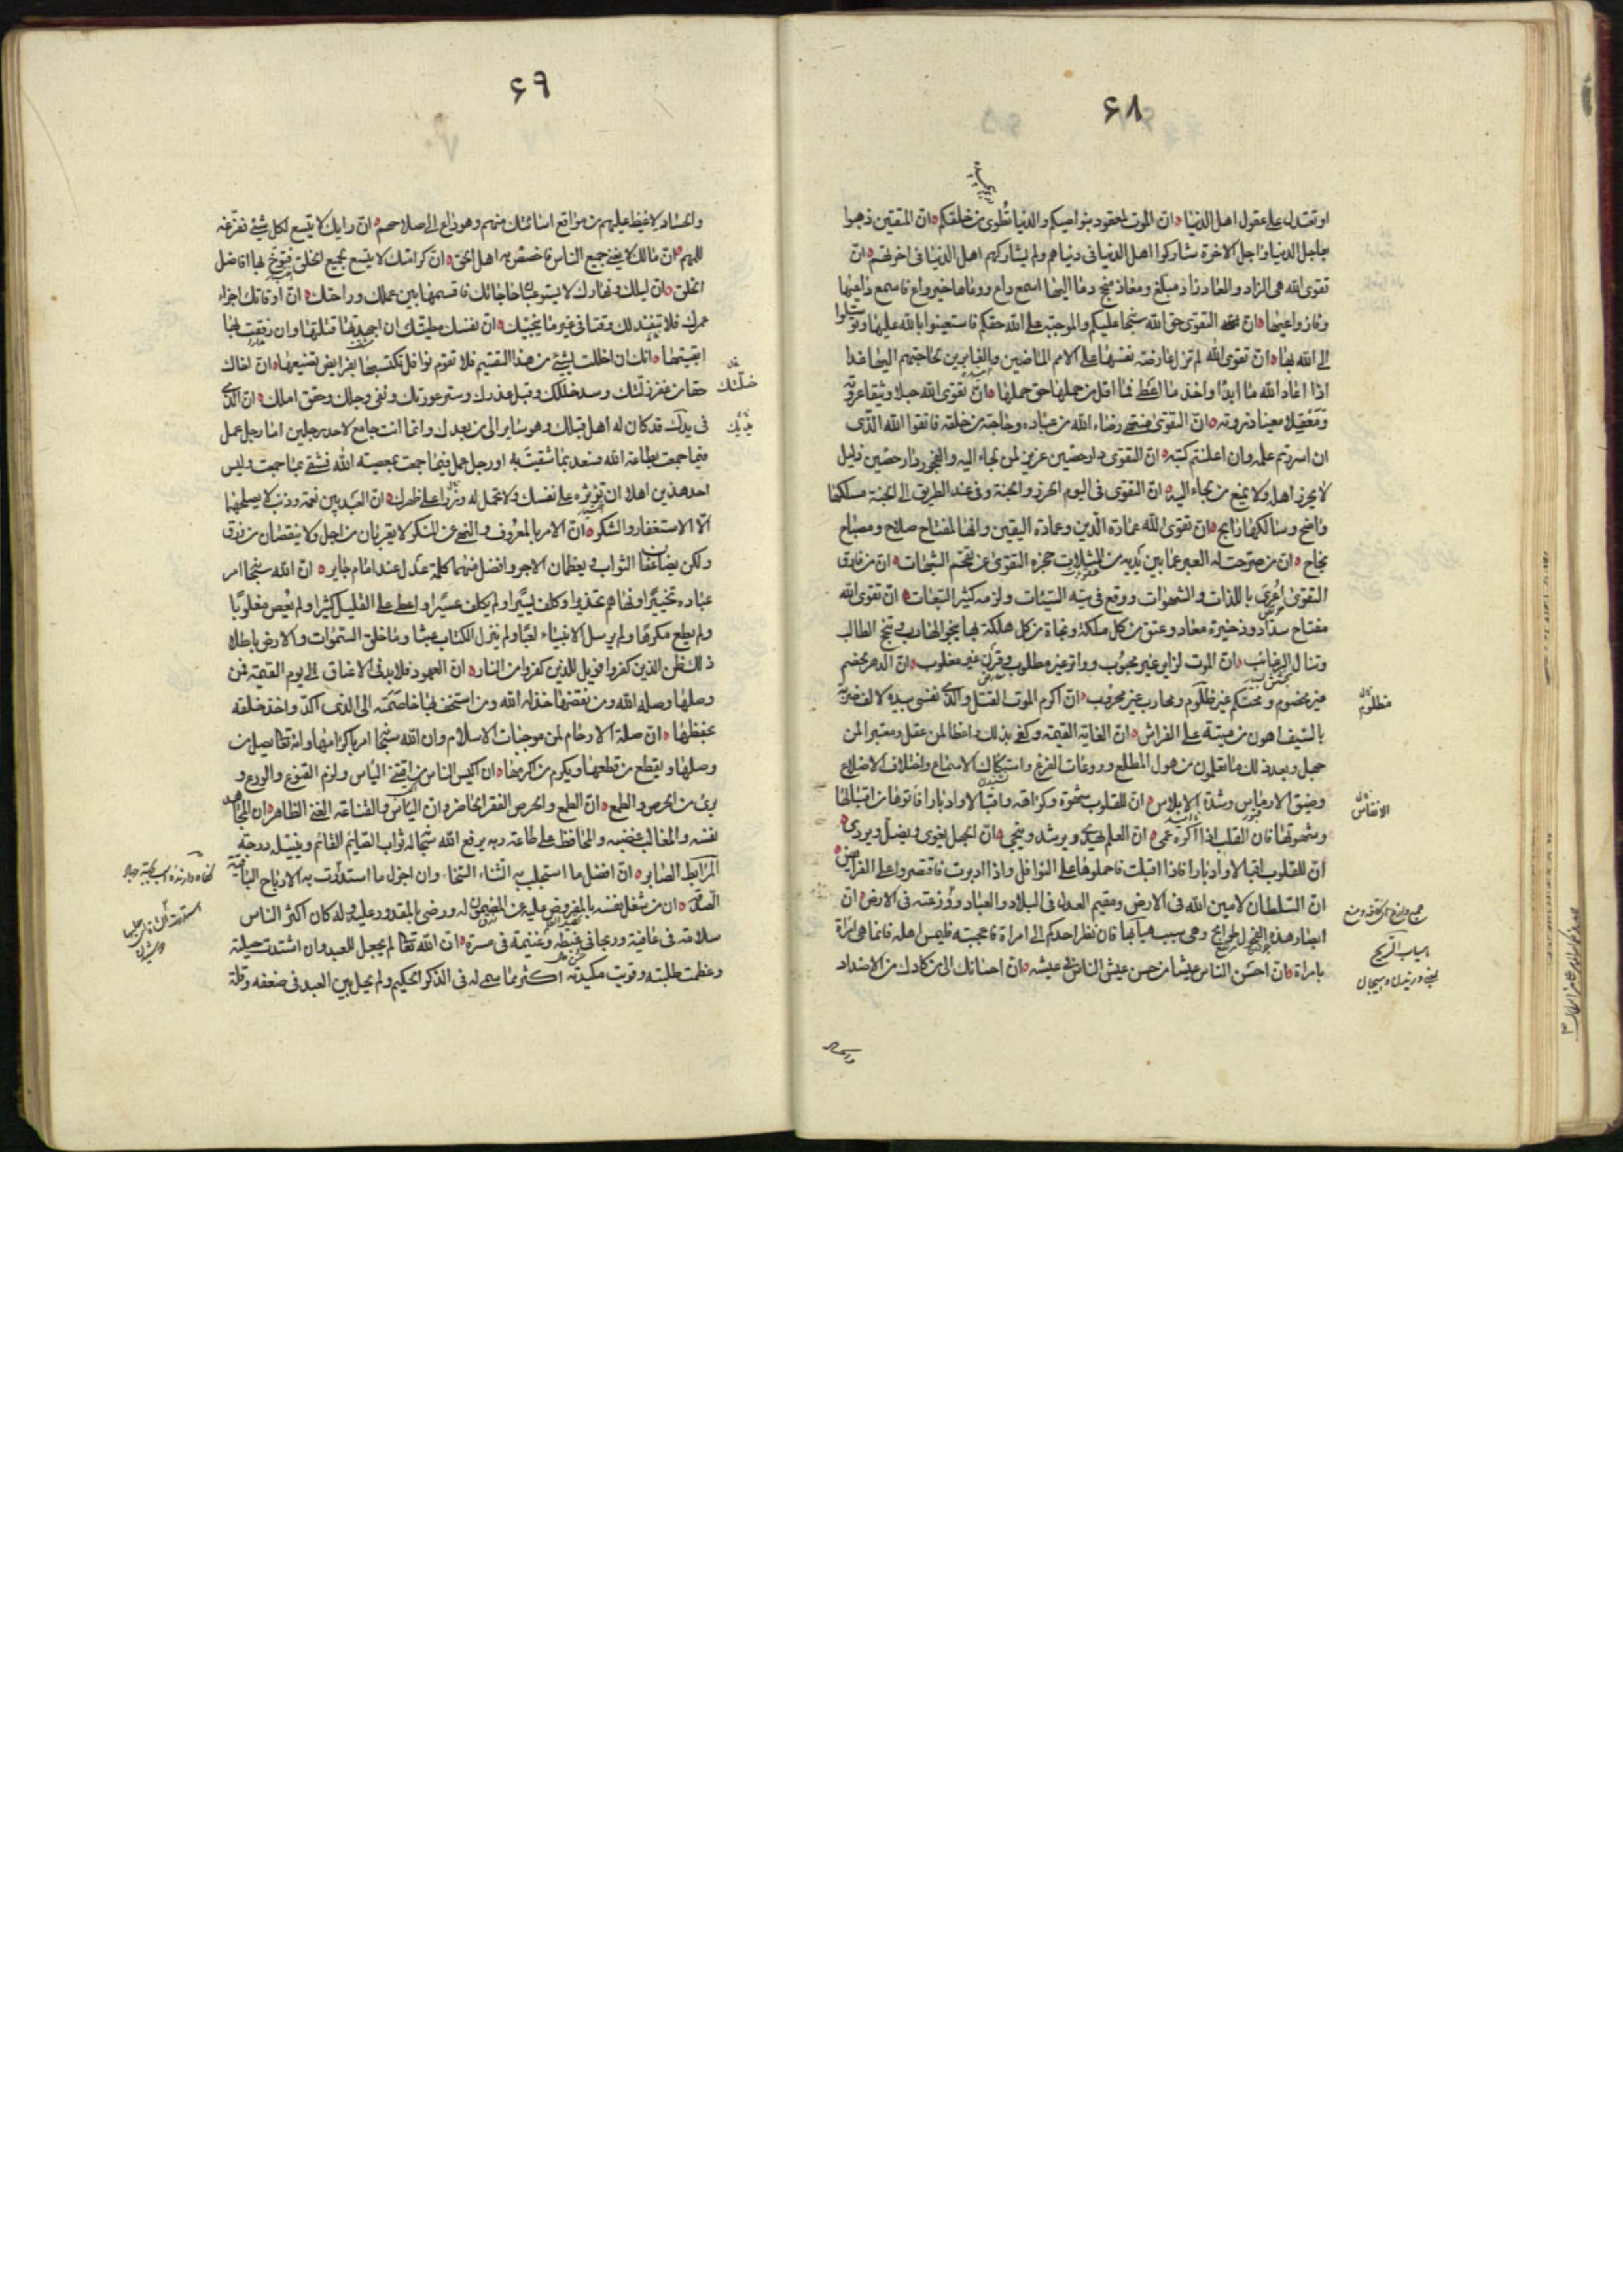 ۶۸
او تعتدل على عقول اهل الدنيا ان الموت لمعقود بنواصيكم والدنيا تطوى من خلفكم ان المتقين ذهبوا
بعاجل الدنيا واجل الاخرة شاركوا اهل الدنيا فى دنياهم ولم يشاركهم اهل الدنيا فى اخرتهم ان
تقوى الله هى الزاد والمعاد زاد مبلغ ومعاذ منجح دعا اليها اسمع داع ووعاها خير واع فاسمع داعيها
وفاز واعيها ان التقوى حق الله سبحانه عليكم والموجبة على الله حقكم فاستعينوا بالله عليها وتوسلوا
الى الله بها ان تقوى الله لم تزل عارضة نفسها على الامم الماضين والغابرين لحاجتهم اليها غدا
اذا اعاد الله ما ابدا واخذ ما اعطى فما اقل من حملها حق حملها ان تقوى الله حبلا وثيقا عروته
ومعقلا منيعا ذروته ان التقوى منتهى رضاء الله من عباده وحاجته من خلقه فاتقوا الله الذى
ان اسررتم علمه وان اعلنتم كتبه ان التقوى دار حصين عزيز لمن لجاء اليه والفجور دار حصين ذليل
لا يحرز اهله ولا يمنع من لجاء اليه ان التقوى فى اليوم الحرز والجنة وفى غد الطريق الى الجنة مسلكها
واضح وسالكها رابح ان تقوى الله عمارة الدين وعمادة اليقين وانها لمفتاح صلاح ومصباح
نجاح ان من صرحت له العبر عما بين يديه من المثلات حجزه التقوى عن تقحم الشبهات ان من فارق
التقوى اغرى باللذات والشهوات ووقع فى تيه السيئات ولزمه كثير التبعات ان تقوى الله
مفتاح سداد وذخيرة معاد وعتق من كل ملكة ونجاة من كل هلكة بها ينجو الهارب وتنجح الطالب
وتنال الرغائب ان الموت لزائر غير محبوب وواتر غير مطلوب وقرن غير مغلوب ان الدهر لخصم
غير مخصوم ومحتكم غير ظلوم ومحارب غير محروب ان اكرم الموت القتل والذى نفسى بيده لالف ضربة
بالسيف اهون من ميتة على الفراش ان الغاية القيمة وكفى بذلك واعظا لمن عقل ومعتبرا لمن
جهل وبعد ذلك ما تعلمون من هول المطلع وروعات الفزع واستكاك الاسماع واختلاف الاضلاع
وضيق الارماس وشدة الابلاس ان للقلوب شهوة وكراهة واقبالا وادبارا فاتوها من اقبالها
وشهوتها فان القلب اذا اكره عمى ان العلم يهدى ويرشد وينجى ان الجهل يغوى ويضل ويردى
ان للقلوب اقبالا وادبارا فاذا اقبلت فاحملوها على النوافل واذا ادبرت فاقتصروا على الفرايض
ان السلطان لامين الله فى الارض ومقيم العدل فى البلاد والعباد ووزعته فى الارض ان
ابصار هذه الفحول طوامح وهى سبب هبابها فان نظر احدكم الى امراة فاعجبته فليمس اهله فانما هى امراة
بامراة ان احسن الناس عيشا من حسن عيش الناس فى عيشه ان احسانك الى من كادك من الاضداد
مظلوم
الانفاس
هباب الريح
۶۹
والحساد لاغيظ عليهم من مواقع اسائتك منهم وهو داع الى صلاحهم ان رايك لا يتسع لكل شىء ففرغه
للمهم ان مالك لا يغنى جميع الناس فاخصص به اهل الحق ان كرامتك لا يتسع بجميع الخلق فتوخ بها افاضل
الخلق ان ليلك ونهارك لا يستوعبان حاجاتك فاقسمهما بين عملك وراحتك ان اوقاتك اجزاء
عمرك فلا تنفد لك وقتا فى غير ما ينجيك ان نفسك مطيتك ان اجهدتها قتلتها وان رفقت بها
ابقيتها انك ان اخللت بشىء من هذا التقسيم فلا تقوم نوافل تكتسبها بفرايض تضيعها ان اخاك
حقا من غفر زلتك وسد خللك وقبل عذرك وستر عورتك ونفى وجلك وحقق املك ان الذى
فى يدك قد كان له اهل قبلك وهو ساير الى من بعدك وانما انت جامع لاحد رجلين اما رجل عمل
فيما جمعت بطاعة الله فسعد بما شقيت به او رجل عمل فيما جمعت بمعصيته الله فشقى بما جمعت وليس
احد هذين اهلا ان تؤثره على نفسك ولا تحمل له وزرا على ظهرك ان العبد بين نعمة وذنب لا يصلحهما
الا الاستغفار والشكر ان الامر بالمعروف والنهى عن المنكر لا يقربان من اجل ولا ينقصان من رزق
ولكن يضاعفان الثواب ويعظمان الاجر وافضل منهما كلمة عدل عند امام جاير ان الله سبحانه امر
عباده تخييرا ونهاهم تحذيرا وكلف يسيرا ولم يكلف عسيرا واعطى على القليل كثيرا ولم يعص مغلوبا
ولم يطع مكرها ولم يرسل الانبياء لعبا ولم ينزل الكتاب عبثا وما خلق السموات والارض باطلا
ذلك ظن الذين كفروا فويل للذين كفروا من النار ان العهود قلائد فى الاعناق الى يوم القيمة فمن
وصلها وصله الله ومن نقضها خذله الله ومن استخف بها خاصمته الى الذى اكدها واخذ خلقه
بحفظها ان صلة الارحام لمن موجبات الاسلام وان الله سبحانه امر باكرامها وانه تعالى يصل من
وصلها ويقطع من قطعها ويكرم من اكرمها ان اكيس الناس من اقتنى الياس ولزم القنوع والورع و
برئ من الحرص والطمع ان الطمع والحرص الفقر الحاضر وان الياس والقناعة الغنى الظاهر ان المجاهد
نفسه والمغالب غضبه والمحافظ على طاعة ربه يرفع الله سبحانه له ثواب الصايم القائم وينيله درجة
المرابط الصابر ان افضل ما استجلب به الثناء السخاء وان اجزل ما استدرت به الارباح الباقية
الصدقة ان من شغل نفسه بالمفروض عليه عن المضمون له ورضى بالمقدور عليه وله كان اكثر الناس
سلامة فى عافية وربحا فى غبطة وغنيمة فى مسرة ان الله تعالى لم يجعل للعبد وان اشتدت حيلته
وعظمت طلبته وقويت مكيدته اكثر مما سمى له فى الذكر الحكيم ولم يحل بين العبد فى ضعفه وقلة
خلتك
يديك